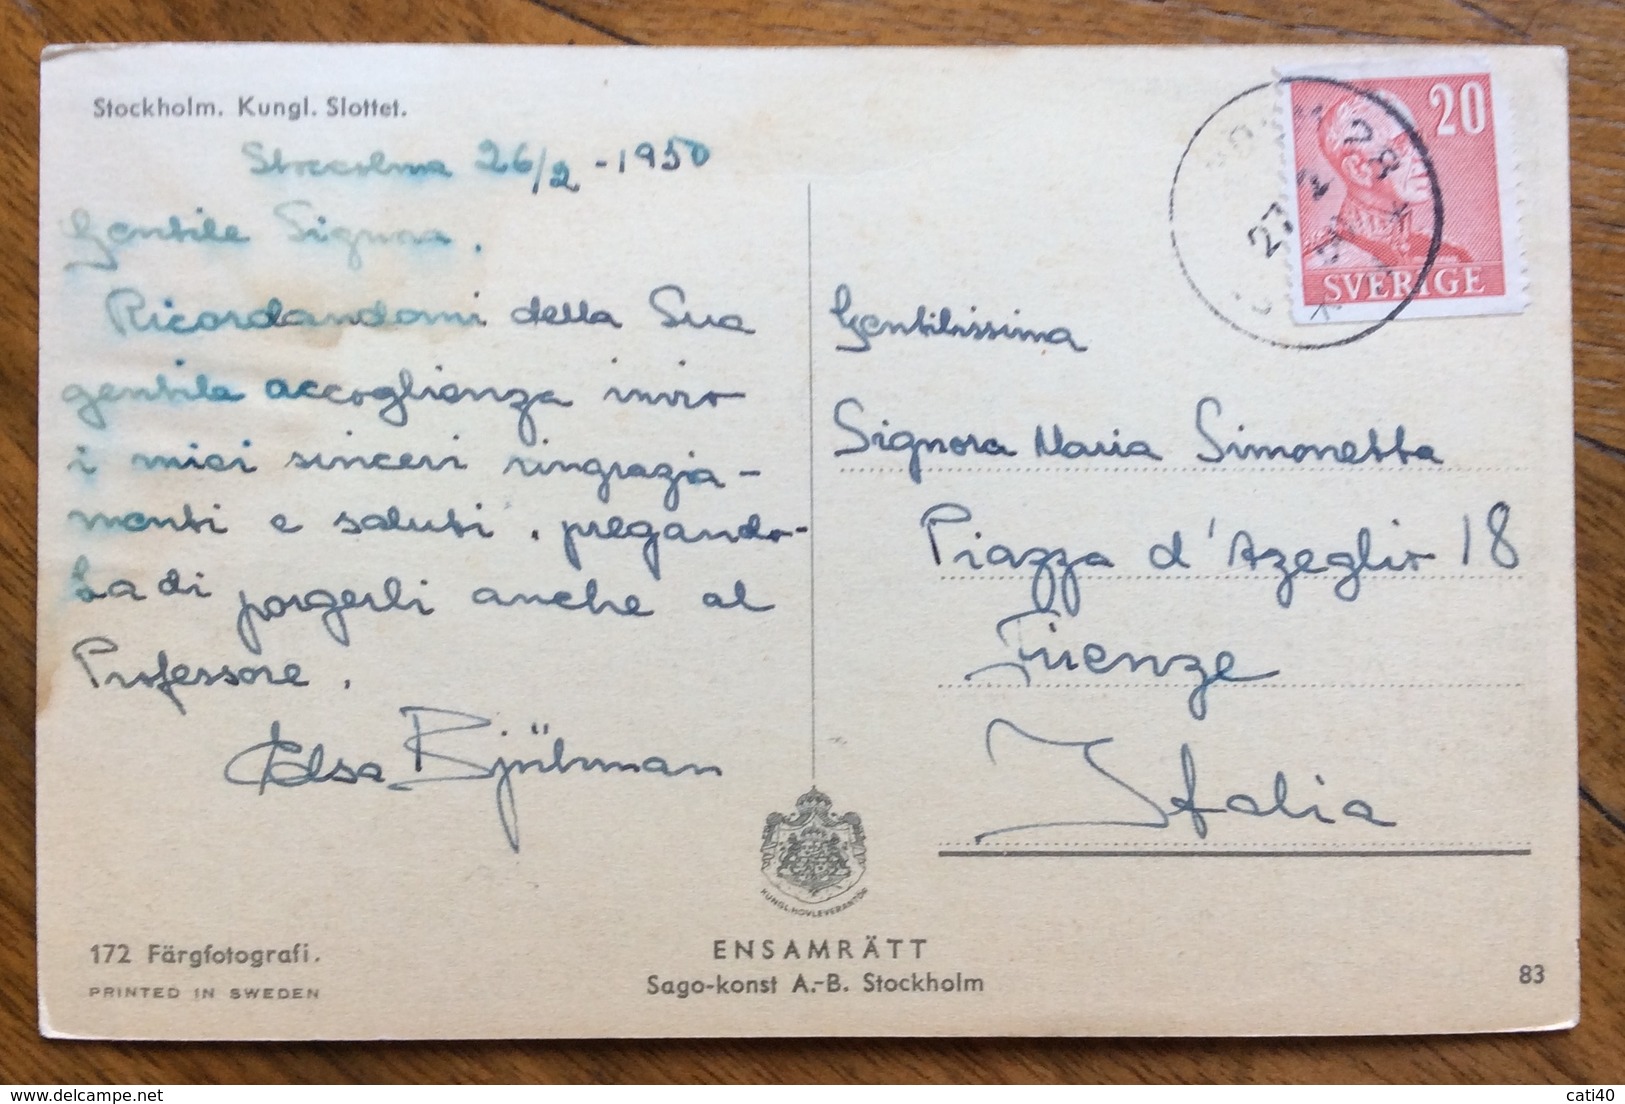 Stockholm. Kungl. Slottet.
Stoccolma 26/2 - 1950
Gentile Signora.
Ricordandomi della Sua
gentile accoglienza invio
i miei sinceri ringrazia-
menti e saluti, pregando-
La di porgerli anche al
Professore.
Elsa Bjühman
172 Färgfotografi.
PRINTED IN SWEDEN
20
SVERIGE
27 2
Gentilissima
Signora Maria Simonetta
Piazza d'Azeglio 18
Firenze
Italia
KUNGL. HOVLEVERANTÖR
ENSAMRÄTT
Sago-konst A.-B. Stockholm
83
cati40